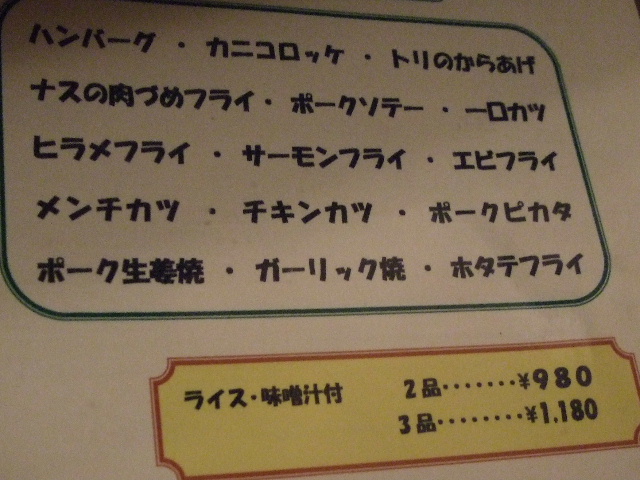 ハンバーグ ・ カニコロッケ ・ トリのからあげ
ナスの肉づめフライ・ ポークソテー ・ 一口カツ
ヒラメフライ ・ サーモンフライ ・ エビフライ
メンチカツ ・ チキンカツ ・ ポークピカタ
ポーク生姜焼 ・ ガーリック焼 ・ ホタテフライ
ライス・味噌汁付 2品・・・・・・・¥980
3品・・・・・・・・¥1.180